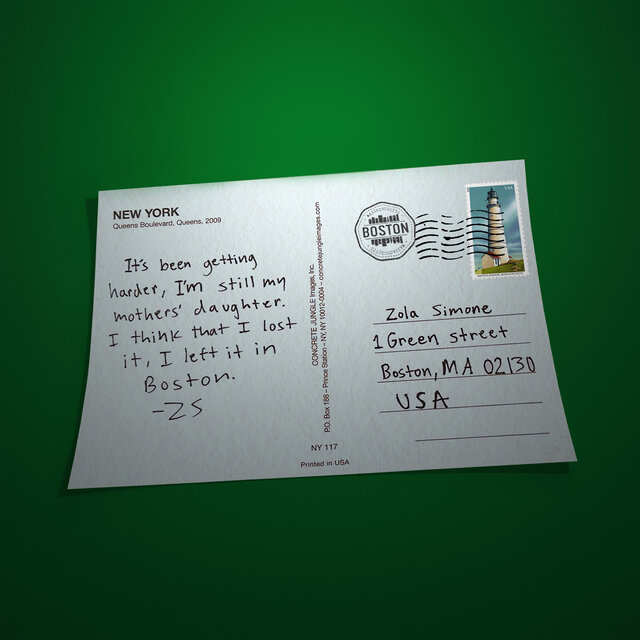 NEW YORK
Queens Boulevard, Queens, 2009
It's been getting
harder, I'm still my
mothers' daughter.
I think that I lost
it, I left it in
Boston.
-ZS
CONCRETE JUNGLE Images, Inc.
P.O. Box 188 – Prince Station – NY, NY 10012-0004 – concretejungleimages.com
NY 117
Printed in USA
BOSTON
USA
Zola Simone
1 Green street
Boston, MA 02130
USA